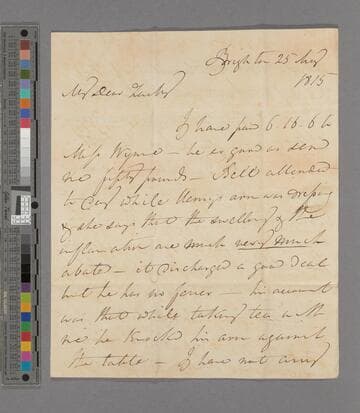 Brighton 25
1815
My dear
I have paid 6-16-6 to
Miss Wynne - be so good as send
me fifty pounds - Bell attended
to day while Henry's arm was dressing
& she says that the swelling & the
inflammation are much very much
abated - it discharged a good deal
but he has no fever - his account
was that while taking tea with
me he knocked his arm against
the table - I have not